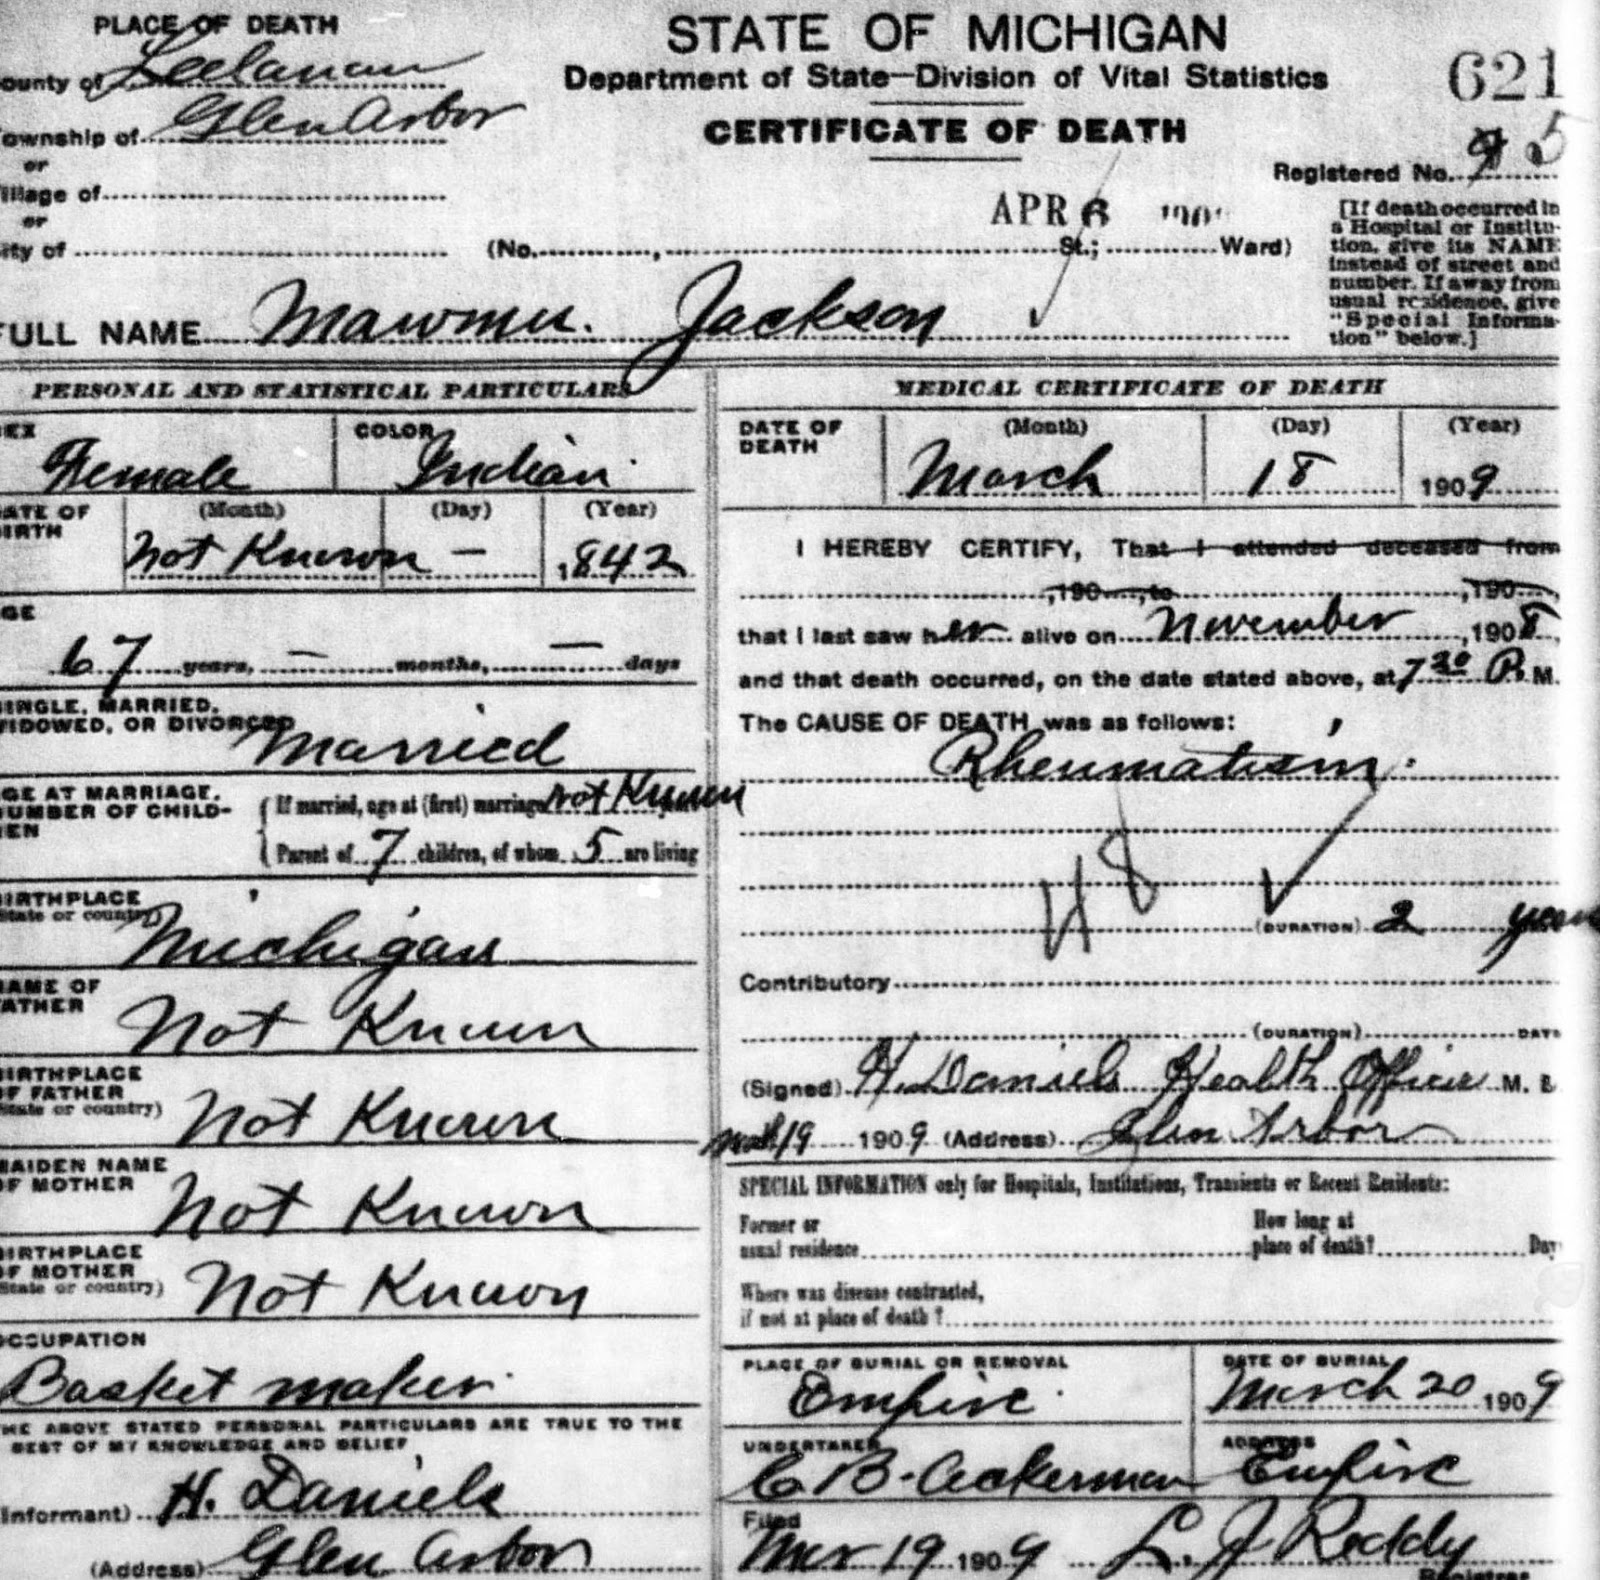 PLACE OF DEATH
ounty of Leelanau
ownship of Glen Arbor
or
illage of
or
ity of
STATE OF MICHIGAN
Department of State—Division of Vital Statistics
CERTIFICATE OF DEATH
621
Registered No. 5
APR 6
(No. , St.; Ward)
[If death occurred in
a Hospital or Institu-
tion, give its NAME
instead of street and
number. If away from
usual residence, give
"Special Informa-
tion" below.]
FULL NAME Mawmu. Jackson
PERSONAL AND STATISTICAL PARTICULARS
EX
Female
COLOR
Indian
ATE OF
IRTH
(Month) (Day) (Year)
Not Known — 1842
GE
67 years, — months, — days
SINGLE, MARRIED,
WIDOWED, OR DIVORCED
Married
GE AT MARRIAGE,
NUMBER OF CHILD-
EN
If married, age at (first) marriage Not Known
Parent of 7 children, of whom 5 are living
BIRTHPLACE
(State or country)
Michigan
NAME OF
FATHER
Not Known
BIRTHPLACE
OF FATHER
(State or country)
Not Known
MAIDEN NAME
OF MOTHER
Not Known
BIRTHPLACE
OF MOTHER
(State or country)
Not Known
OCCUPATION
Basket maker
THE ABOVE STATED PERSONAL PARTICULARS ARE TRUE TO THE
BEST OF MY KNOWLEDGE AND BELIEF
Informant) H. Daniels
(Address) Glen Arbor
MEDICAL CERTIFICATE OF DEATH
DATE OF
DEATH
(Month) (Day) (Year)
March 18 1909
I HEREBY CERTIFY, That I attended deceased from
,190 , to ,190 ,
that I last saw her alive on November ,1908,
and that death occurred, on the date stated above, at 7 30 P. M.
The CAUSE OF DEATH was as follows:
Rheumatism.
48
(DURATION) 2 years
Contributory
(DURATION) DAYS
(Signed) H. Daniels Health Officer M. D
Mch 19 1909 (Address) Glen Arbor
SPECIAL INFORMATION only for Hospitals, Institutions, Transients or Recent Residents:
Former or
usual residence
How long at
place of death? Day
Where was disease contracted,
if not at place of death?
PLACE OF BURIAL OR REMOVAL
Empire
DATE OF BURIAL
March 20 1909
UNDERTAKER
C B. Ackerman
ADDRESS
Empire
Filed
Mar 19 1909 L. J Reddy
Registrar